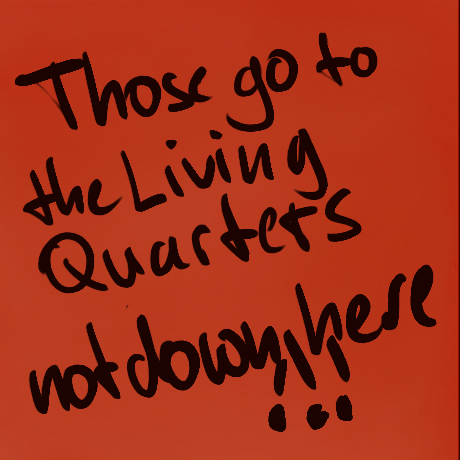 Those go to
the Living
Quarters
not down here
!!!